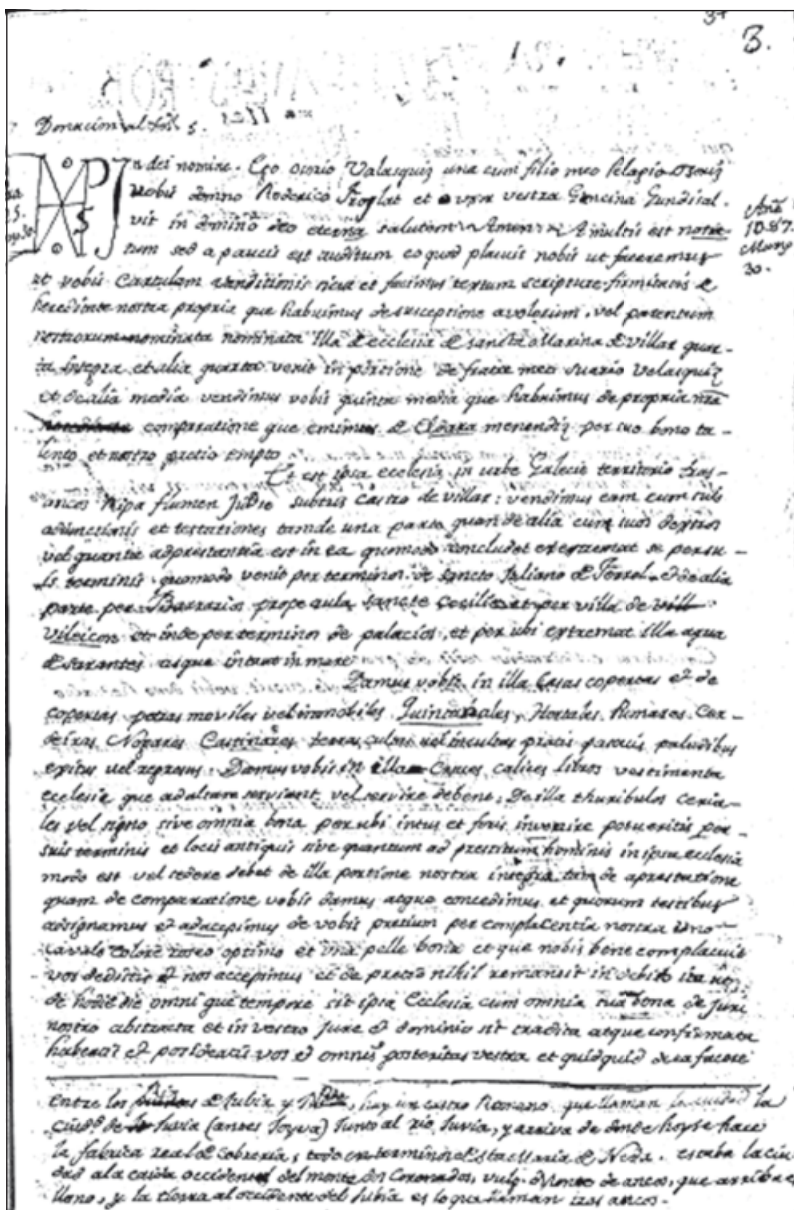 3.
Donacion al fol. 5.
In dei nomine. Ego Osorio Valasquiz una cum filio meo Pelagio Osoriz
vobis domno Roderico Froylat et uxor vestra Guncina Gundisal-
vit in domino deo eterna salutem Amen. A multis est notis-
tum sed a paucis est auditum eo quod placuit nobis ut faceremus
et vobis Cartulam venditionis sicut et facimus textum scripture firmitatis de
hereditate nostra propria que habuimus de susceptione avolorum, vel parentum
nostrorum nominata nominata illa de ecclesia de sancta Marina de villar quar-
ta integra et alia quarta venit in porcione de fratre meo Suario Velasquiz
et de alia media vendimus vobis quinta media que habuimus de propria nra
comparatione que emimus de Eldara menendiz per suo bono ta-
lento et nostro pretio empto
Et est ipsa ecclesia in urbe Galecie territorio tras-
ancos ripa flumen Jubie subtus castro de villar: vendimus eam cum suis
adiunctionis et testationes tam de una parte quam de alia cum suos dextros
vel quanta adprestantia est in ea quomodo concludet et extremat se per su-
is terminis quomodo venit per terminos de sancto Juliano de Ferrol et de alia
parte per Barraria prope aula sancte Cecilie et per villa de vill
vileicos et inde per termino de palacios, et per ubi extremat illa aqua
de sarantes usque intrat in mare
Damus vobis in illa Casas copertas et de
copertas petras moviles vel inmobiles Quintanales, Hortales, Pumares Cer-
deiras Nogares Castinares terras cultas vel incultas pratis pascuis paludibus
exitus vel regresus. Damus vobis in illa Cruces calices libros vestimenta
ecclesie que ad altare serviant, vel servire debent, De illa thuribulos ceria-
les vel signo sive omnia bona per ubi intus et foris invenire potueritis per
suis terminis et locis antiquis sive quantum ad prestitum hominis in ipsa ecclesia
modo est vel cedere debet de illa portione nostra integra tam de aprestatione
quam de comparatione vobis damus atque concedimus et quorum testibus
adsignamus et adaccepimus de vobis pretium per complacentia nostra uno
cavalo colore roseo optimo et una pelle bona et que nobis bene complacuit
vos dedistis et nos accepimus et de precio nihil remansit in debito ita ut
de hodie die omni que tempore sit ipsa Ecclesia cum omnia sua bona de juri
nostro abstracta et in vestro jure et dominio sit tradita atque confirmata
habeatis et posideatis vos et omnis posteritas vestra et quidquid de ea facere
Año
1087.
Marzo
30.
Entre los de Jubia y Neda, hay un castro Romano que llaman la ciudad la
Ciud. de Juvia (antes Joyva) Junto al rio Juvia, y arriva de donde hoy se hace
la fabrica real de Cobreria, todo en termino de Sta Maria de Neda. estaba la ciu-
dad a la caida occidental del monte dos Coronados, vulg. Monte de ancos, que arriba es
llano, y la tierra al occidente del Jubia es lo que llaman tras ancos.